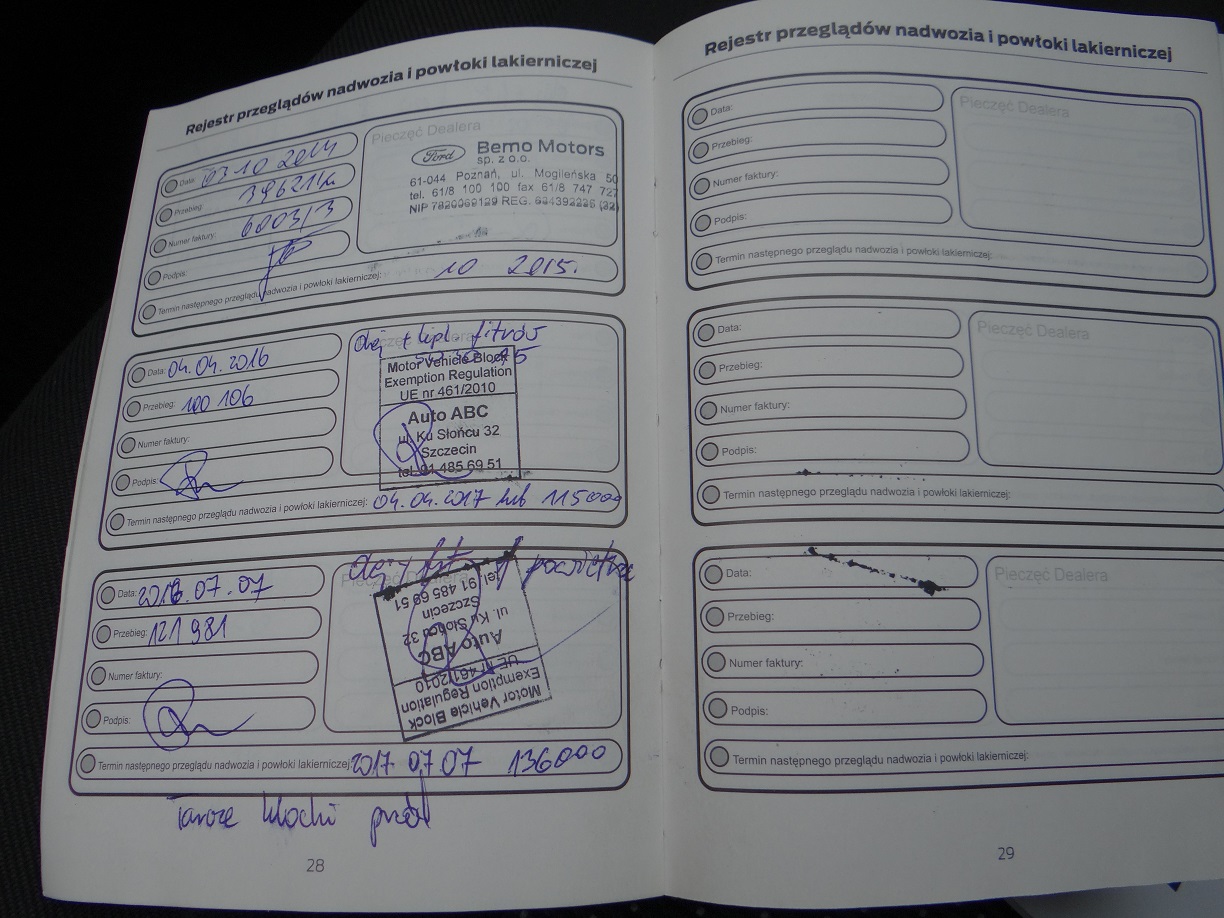 Rejestr przeglądów nadwozia i powłoki lakierniczej
Data: 03 10 2014
Przebieg:
Numer faktury: 6003/3
Podpis:
Termin następnego przeglądu nadwozia i powłoki lakierniczej: 10 2015.
Pieczęć Dealera
Ford Bemo Motors
sp. z o.o.
61-044 Poznań, ul. Mogileńska 50
tel. 61/8 100 100 fax 61/8 747 727
NIP 7820069129 REG.
Data: 04.04.2016
Przebieg: 100 106
Numer faktury:
Podpis:
Termin następnego przeglądu nadwozia i powłoki lakierniczej: 04.04.2017 lub 115000
olej + kpl. fitrów
Motor Vehicle Block
Exemption Regulation
UE nr 461/2010
Auto ABC
ul. Ku Słońcu 32
Szczecin
tel. 91 485 69 51
Data: 2016.07.07
Przebieg: 121 981
Numer faktury:
Podpis:
Termin następnego przeglądu nadwozia i powłoki lakierniczej: 2017 07 07 136000
Pieczęć Dealera
olej powietrza
Motor Vehicle Block
Exemption Regulation
UE nr 461/2010
Auto ABC
ul. Ku Słońcu 32
Szczecin
tel. 91 485 69 51
Tarcze klocki przód
28
Rejestr przeglądów nadwozia i powłoki lakierniczej
Data:
Przebieg:
Numer faktury:
Podpis:
Termin następnego przeglądu nadwozia i powłoki lakierniczej:
Pieczęć Dealera
Data:
Przebieg:
Numer faktury:
Podpis:
Termin następnego przeglądu nadwozia i powłoki lakierniczej:
Pieczęć Dealera
Data:
Przebieg:
Numer faktury:
Podpis:
Termin następnego przeglądu nadwozia i powłoki lakierniczej:
Pieczęć Dealera
29